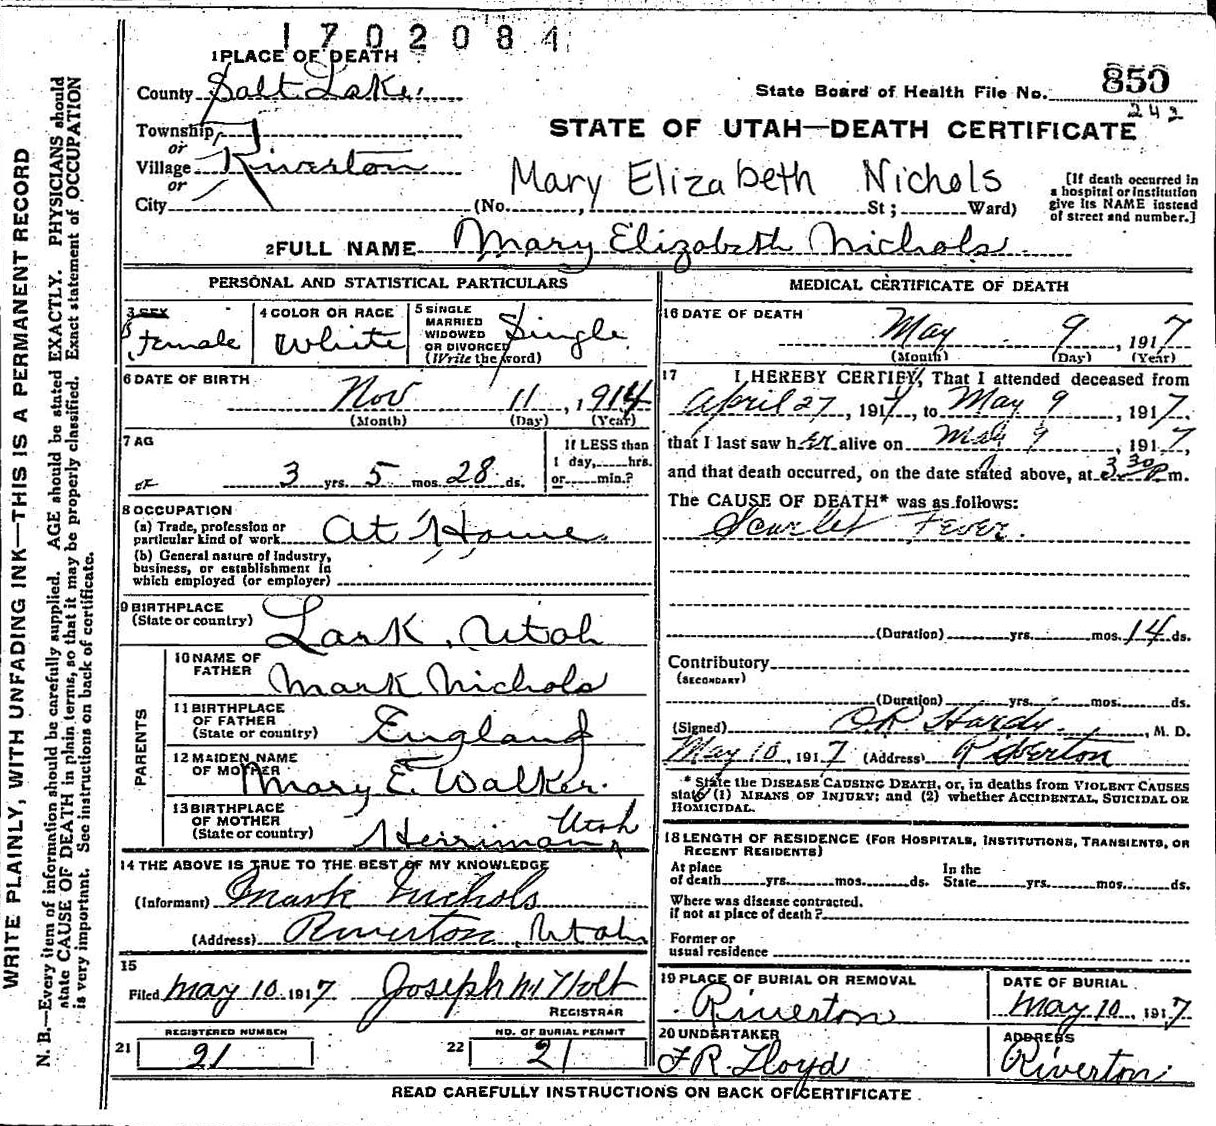 1702084
1 PLACE OF DEATH
County Salt Lake
State Board of Health File No. 850
242
Township
or
Village Riverton
or
City
STATE OF UTAH—DEATH CERTIFICATE
Mary Elizabeth Nichols
(No. , St; Ward)
[If death occurred in
a hospital or institution
give its NAME instead
of street and number.]
2 FULL NAME Mary Elizabeth Nichols
PERSONAL AND STATISTICAL PARTICULARS
3 SEX
Female
4 COLOR OR RACE
White
5 SINGLE
MARRIED
WIDOWED
OR DIVORCED
(Write the word)
Single
6 DATE OF BIRTH
Nov 11, 1914
(Month) (Day) (Year)
7 AG
3 yrs. 5 mos. 28 ds.
If LESS than
1 day, hrs.
or min.?
8 OCCUPATION
(a) Trade, profession or
particular kind of work At Home
(b) General nature of Industry,
business, or establishment in
which employed (or employer)
9 BIRTHPLACE
(State or country) Lark, Utah
PARENTS
10 NAME OF
FATHER Mark Nichols
11 BIRTHPLACE
OF FATHER
(State or country) England
12 MAIDEN NAME
OF MOTHER Mary E. Walker.
13 BIRTHPLACE
OF MOTHER
(State or country) Herriman Utah
14 THE ABOVE IS TRUE TO THE BEST OF MY KNOWLEDGE
(Informant) Mark Nichols
(Address) Riverton, Utah
15
Filed May 10 1917 Joseph M Holt
REGISTRAR
REGISTERED NUMBER
21 21
NO. OF BURIAL PERMIT
22 21
MEDICAL CERTIFICATE OF DEATH
16 DATE OF DEATH
May 9, 1917
(Month) (Day) (Year)
17 I HEREBY CERTIFY, That I attended deceased from
April 27, 1917, to May 9, 1917,
that I last saw her alive on May 9, 1917,
and that death occurred, on the date stated above, at 3.30 P m.
The CAUSE OF DEATH* was as follows:
Scarlet Fever.
(Duration) yrs. mos. 14 ds.
Contributory
(SECONDARY)
(Duration) yrs. mos. ds.
(Signed) O.R. Hardy, M. D.
May 10, 1917 (Address) Riverton
* State the DISEASE CAUSING DEATH, or, in deaths from VIOLENT CAUSES
state (1) MEANS OF INJURY; and (2) whether ACCIDENTAL, SUICIDAL OR
HOMICIDAL.
18 LENGTH OF RESIDENCE (FOR HOSPITALS, INSTITUTIONS, TRANSIENTS, OR
RECENT RESIDENTS)
At place
of death yrs. mos. ds.
In the
State yrs. mos. ds.
Where was disease contracted.
if not at place of death?
Former or
usual residence
19 PLACE OF BURIAL OR REMOVAL
Riverton
DATE OF BURIAL
May 10, 1917
20 UNDERTAKER
F R. Lloyd
ADDRESS
Riverton
READ CAREFULLY INSTRUCTIONS ON BACK OF CERTIFICATE
WRITE PLAINLY, WITH UNFADING INK—THIS IS A PERMANENT RECORD
N. B.—Every item of information should be carefully supplied. AGE should be stated EXACTLY. PHYSICIANS should
state CAUSE OF DEATH in plain terms, so that it may be properly classified. Exact statement of OCCUPATION
is very important. See instructions on back of certificate.